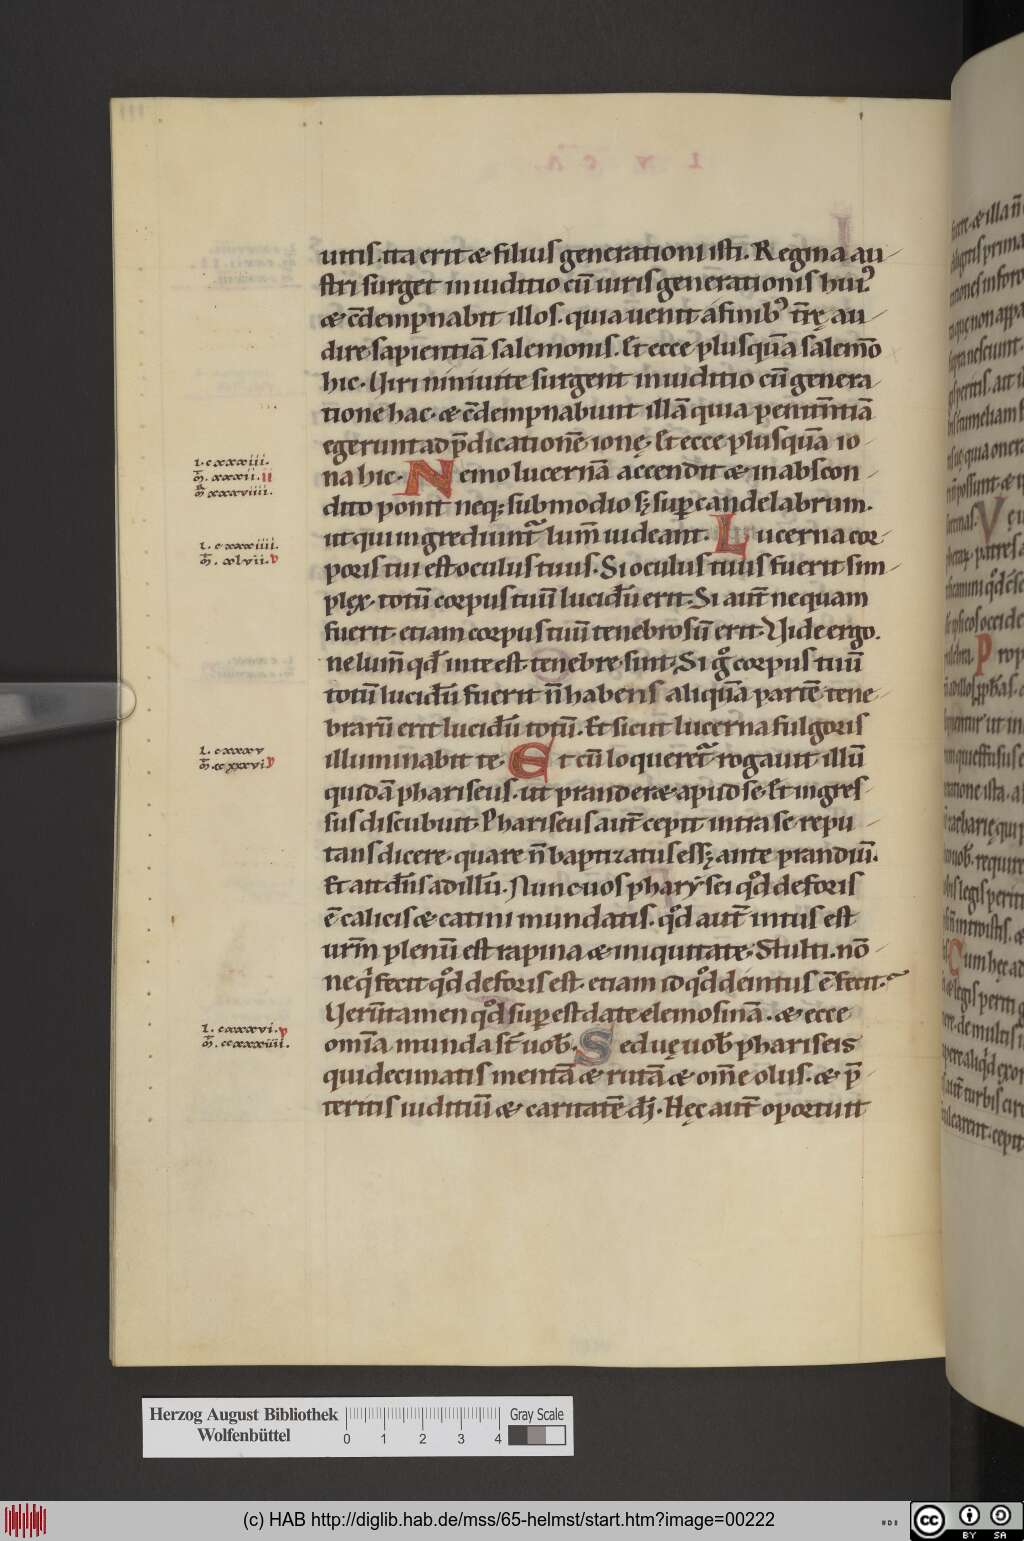 uitis. ita erit & filius generationi isti. Regina au
stri surget in iuditio cū uiris generationis hui⁹
& c̄dempnabit illos. quia uenit a finib⁹ t̄rę au
dire sapientiā salemonis. Et ecce plus quā salemō
hic. Uiri niniuite surgent in iuditio cū genera
tione hac. & c̄dempnabunt illā quia penitentiā
egerunt ad p̄dicationē ionę. Et ecce plus quā io
na hic. Nemo lucernā accendit & in abscon
dito ponit neq; sub modio sꝫ sup candelabrum.
ut qui ingrediunt̄ lum̄ uideant. Lucerna cor
poris tui est oculus tuus. Si oculus tuus fuerit sim
plęx. totū corpus tuū lucidū erit. Si aut̄ nequam
fuerit. etiam corpus tuū tenebrosū erit. Uide ergo.
ne lum̄ qd̄ in te est. tenebre sint. Si gͦ corpus tuū
totū lucidū fuerit n̄ habens aliquā partē tene
brarū erit lucidū totū. Et sicut lucerna fulgoris
illuminabit te. Et cū loqueret̄ rogauit illū
quidā phariseus. ut prander& apud se. Et ingres
sus discubuit. Phariseus aut̄ cepit intra se repu
tans dicere. quare n̄ baptizatus essꝫ ante prandiū.
Et ait dn̄s ad illū. Nunc uos pharẏsei qͦd deforis
ē calicis & catini mundatis. qͦd aut̄ intus est
urm̄ plenū est rapina & iniquitate. Stulti. nō
ne qͥ fecit qͦd deforis est. etiam id qͦd deintus ē fecit.
Uerūtamen qͦd sup est date elemosinā. & ecce
om̄ia munda st̄ uob̄. Sed uę uob̄ phariseis
qui decimatis mentā & rutā & om̄e olus. & p̄
teritis iuditiū & caritatē dī. Hęc aut̄ oportuit
l. cxxxiii.
m̄. xxxii. II
m̄ xxxviiii.
l. cxxxiiii.
m̄. xlvii.
l. cxxxv
m̄. ccxxxvi
l. cxxxvi.
m̄. ccxxxiiii.
Herzog August Bibliothek
Wolfenbüttel
0 1 2 3 4
Gray Scale
(c) HAB http://diglib.hab.de/mss/65-helmst/start.htm?image=00222
cc BY SA